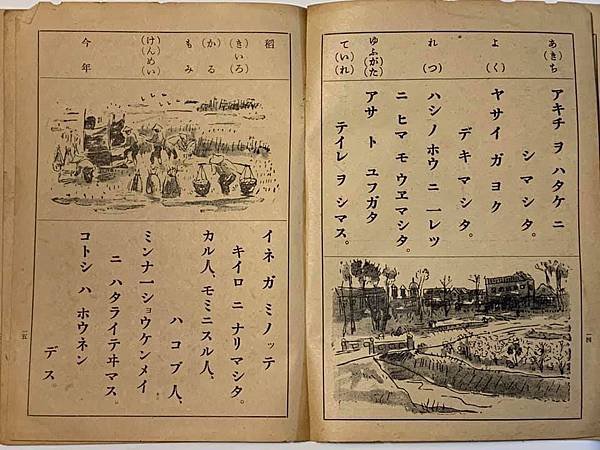 あ(きち)
よ(く)
れ(つ)
ゆふ(がた)
て(いれ)
アキチ ヲ ハタケ ニ
シマシタ。
ヤサイ ガ ヨク
デキマシタ。
ハシノホウ ニ 一レツ
ニ ヒマ モ ウヱマシタ。
アサ ト ユフガタ
テイレ ヲ シマス。
一四
稻
(きいろ)
(か)る
もみ
(けんめい)
今年
イネ ガ ミノッテ
キイロ ニ ナリマシタ。
カル人、モミニスル人、
ハコブ人、
ミンナ一ショウケンメイ
ニ ハタライテヰマス。
コトシ ハ ホウネン
デス。
一五